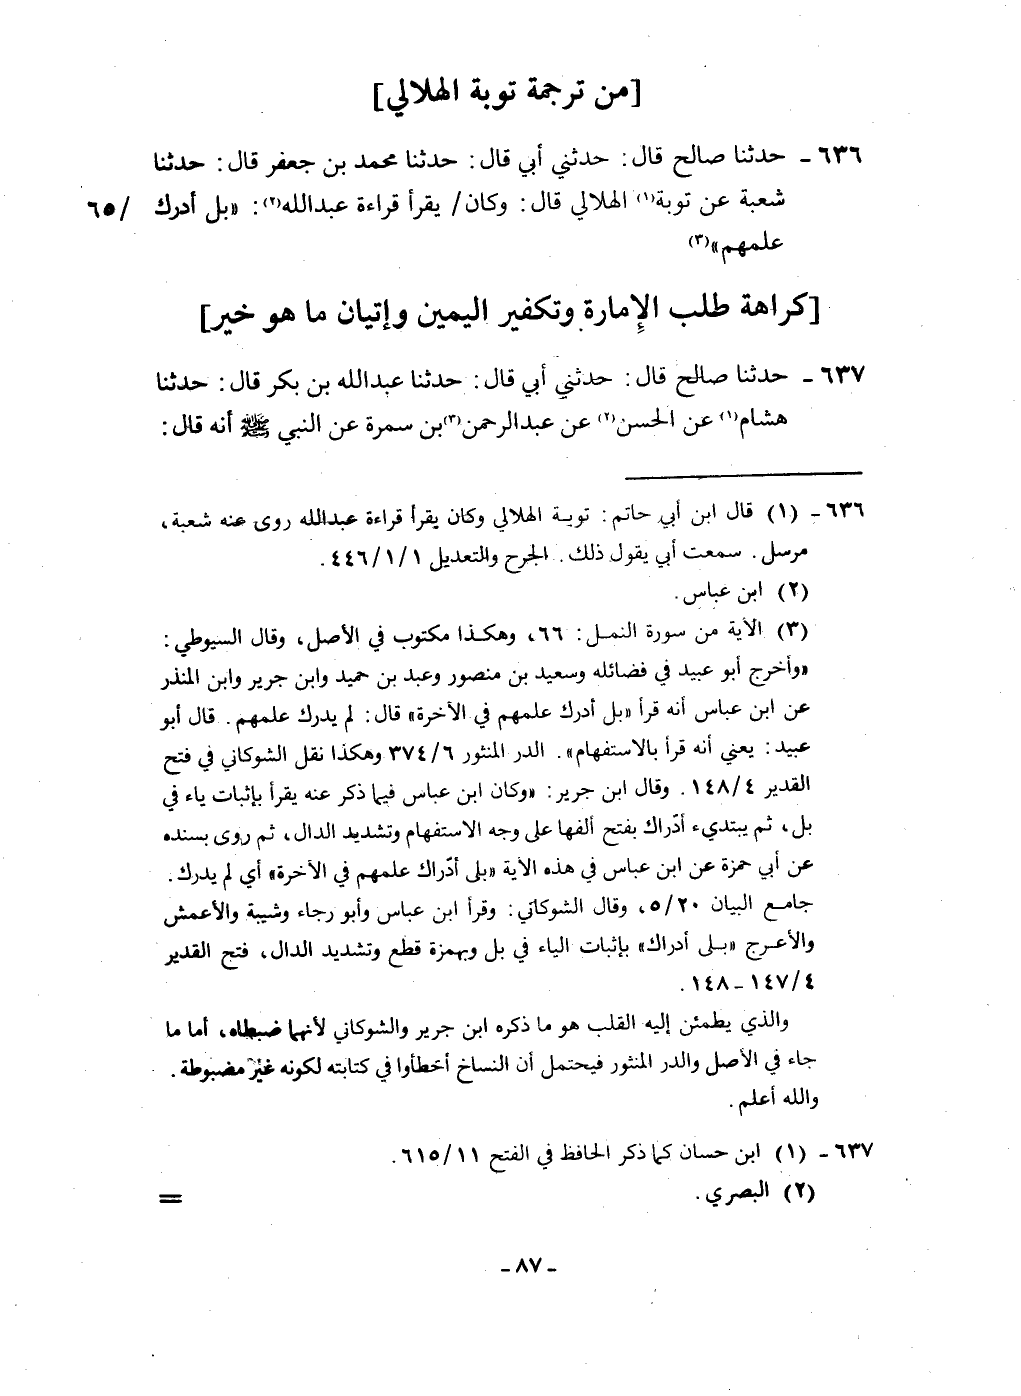 [من ترجمة توبة الهلالي]
٦٣٦ ـ حدثنا صالح قال: حدثني أبي قال: حدثنا محمد بن جعفر قال: حدثنا
شعبة عن توبة(١) الهلالي قال: وكان/ يقرأ قراءة عبدالله(٢): «بل أدرك /٦٥
علمهم»(٣)
[كراهة طلب الإمارة وتكفير اليمين وإتيان ما هو خير]
٦٣٧ ـ حدثنا صالح قال: حدثني أبي قال: حدثنا عبدالله بن بكر قال: حدثنا
هشام(١) عن الحسن(٢) عن عبدالرحمن(٣) بن سمرة عن النبي ﷺ أنه قال:
٦٣٦ ـ (١) قال ابن أبي حاتم: توبة الهلالي وكان يقرأ قراءة عبدالله روى عنه شعبة،
مرسل. سمعت أبي يقول ذلك. الجرح والتعديل ٤٤٦/١/١.
(٢) ابن عباس.
(٣) الأية من سورة النمل: ٦٦، وهكذا مكتوب في الأصل، وقال السيوطي:
«وأخرج أبو عبيد في فضائله وسعيد بن منصور وعبد بن حميد وابن جرير وابن المنذر
عن ابن عباس أنه قرأ «بل أدرك علمهم في الآخرة» قال: لم يدرك علمهم. قال أبو
عبيد: يعني أنه قرأ بالاستفهام». الدر المنثور ٣٧٤/٦ وهكذا نقل الشوكاني في فتح
القدير ١٤٨/٤. وقال ابن جرير: «وكان ابن عباس فيما ذكر عنه يقرأ بإثبات ياء في
بل، ثم يبتديء أدّراك بفتح ألفها على وجه الاستفهام وتشديد الدال، ثم روى بسنده
عن أبي حمزة عن ابن عباس في هذه الأية «بلى أدّراك علمهم في الآخرة» أي لم يدرك.
جامع البيان ٥/٢٠، وقال الشوكاني: وقرأ ابن عباس وأبو رجاء وشيبة والأعمش
والأعرج «بلى أدراك» بإثبات الياء في بل وبهمزة قطع وتشديد الدال، فتح القدير
١٤٧/٤ ـ ١٤٨.
والذي يطمئن إليه القلب هو ما ذكره ابن جرير والشوكاني لأنهما ضبطاه، أما ما
جاء في الأصل والدر المنثور فيحتمل أن النساخ أخطأوا في كتابته لكونه غير مضبوطة.
والله أعلم.
٦٣٧ ـ (١) ابن حسان كما ذكر الحافظ في الفتح ٦١٥/١١.
(٢) البصري. =
ـ ٨٧ ـ